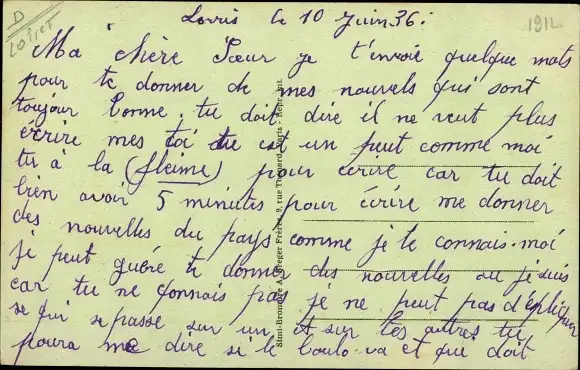 D
LOIRET
Lorris le 10 Juin 36.
1912
Ma chère Sœur je t'envoie quelque mots
pour te donner de mes nouvels qui sont
toujour bonne. tu doit dire il ne veut plus
écrire mes toi tu est un peut comme moi
tu à la (fleime) pour écrire car tu doit
bien avoir 5 minutes pour écrire me donner
des nouvelles du pays comme je te connais. moi
je peut guére te donner des nouvelles ou je suis
car tu ne connais pas je ne peut pas d'épliquer
se qui se passe sur un et sur les autres tu
poura me dire si le boulo va et que doit
Simi-Bromure A. Breger Frères, 9, rue Thénard, Paris